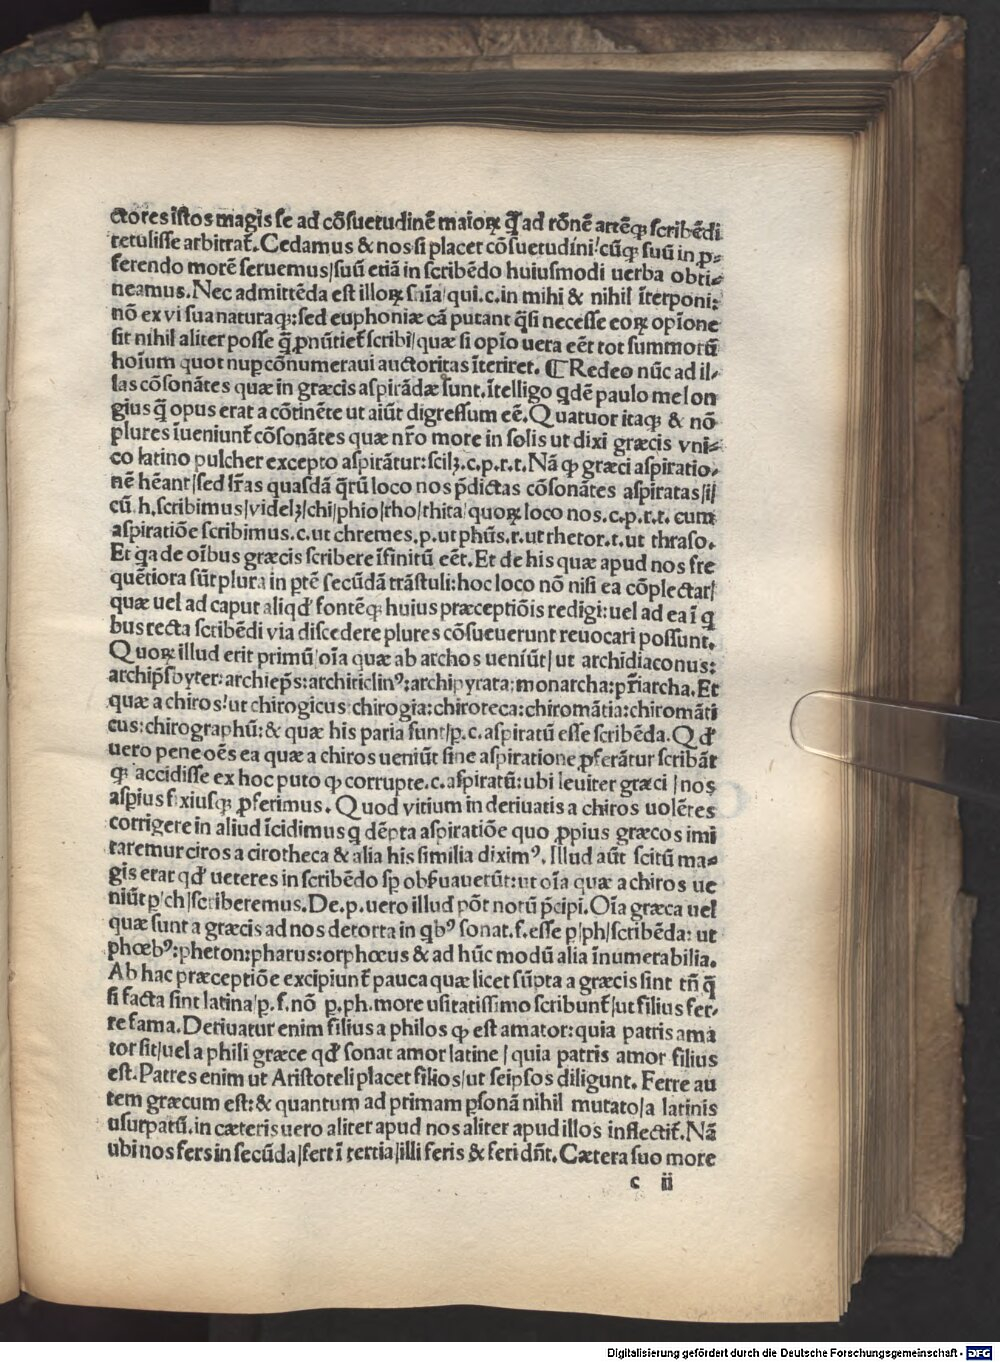 ctores istos magis se ad cõsuetudinẽ maioꝝ q̃ ad rõnẽ artẽqꝫ scribẽdi
retulisse arbitrat̃. Cedamus & nos si placet cõsuetudini/ cũqꝫ suũ in ꝓ-
ferendo morẽ seruemus/suũ etiã in scribẽdo huiusmodi uerba obti-
neamus. Nec admittẽda est illoꝝ snĩa/qui .c. in mihi & nihil ĩterponi:
nõ ex vi sua naturaqꝫ: sed euphoniæ cã putant q̃si necesse eoꝝ opĩone
sit nihil aliter posse q̃ ꝓnũtiet̃ scribi/quæ si opĩo uera eẽt tot summorũ
hoĩum quot nuꝑ cõnumeraui auctoritas ĩteriret. ⸿ Redeo nũc ad il-
las cõsonãtes quæ in græcis aspirãdæ sunt. ĩtelligo qdẽ paulo me lon
gius q̃ opus erat a cõtinẽte ut aiũt digressum eẽ. Quatuor itaqꝫ & nõ
plures ĩueniunt̃ cõsonãtes quæ nr̃o more in solis ut dixi græcis vni-
co latino pulcher excepto aspirãtur: scilꝫ .c.p.r.t. Nã ꝙ græci aspiratio-
nẽ hẽant/sed lr̃as quasdã q̃rũ loco nos p̃dictas cõsonãtes aspiratas/il
cũ .h. scribimus/videlꝫ/chi/phio/rho/thita/quoꝝ loco nos .c.p.r.t. cum
aspiratiõe scribimus .c. ut chremes .p. ut phũs .r. ut rhetor .t. ut thraso.
Et qa de oĩbus græcis scribere ĩfinitũ eẽt. Et de his quæ apud nos fre
quẽtiora sũt plura in ptẽ secũdã trãstuli: hoc loco nõ nisi ea cõplectar/
quæ uel ad caput aliqd' fontẽqꝫ huius præceptiõis redigi: uel ad ea ĩ q
bus recta scribẽdi via discedere plures cõsueuerunt reuocari possunt.
Quoꝝ illud erit primũ/oĩa quæ ab archos ueniũt/ut archidiaconus:
archip̃sbyter: archiep̃s: architiclinꝰ: archipyrata: monarcha: pr̃iarcha. Et
quæ a chiros/ut chirogicus chirogia: chiroteca: chiromãtia: chiromãti
cus: chirographũ: & quæ his paria sunt/ꝑ .c. aspiratũ esse scribẽda. Qd'
uero pene oẽs ea quæ a chiros ueniũt sine aspiratione ꝓferãtur scribãt
qꝫ accidisse ex hoc puto ꝙ corrupte .c. aspiratũ: ubi leuiter græci/nos
aspius fixiusqꝫ ꝓferimus. Quod vitium in deriuatis a chiros uolẽtes
corrigere in aliud ĩcidimus q dẽpta aspiratiõe quo ꝓpius græcos imi
taremur ciros a cirotheca & alia his similia diximꝰ. Illud aũt scitũ ma-
gis erat qd' ueteres in scribẽdo sp obſuauerũt: ut oĩa quæ a chiros ue
niũt ꝑ/ch/scriberemus. De .p. uero illud põt notũ p̃cipi. Oĩa græca uel
quæ sunt a græcis ad nos detorta in qbꝰ sonat .f. esse ꝑ/ph/scribẽda: ut
phœbꝰ: pheton: pharus: orphœus & ad hũc modũ alia ĩnumerabilia.
Ab hac præceptiõe excipiunt̃ pauca quæ licet sũpta a græcis sint tñ q̃
si facta sint latina/ꝑ .f. nõ ꝑ .ph. more usitatissimo scribunt̃/ut filius fer-
re fama. Deriuatur enim filius a philos ꝙ est amator: quia patris ama
tor sit/uel a phili græce qd' sonat amor latine/quia patris amor filius
est. Patres enim ut Aristoteli placet filios/ut seipsos diligunt. Ferre au
tem græcum est: & quantum ad primam ꝑsonã nihil mutato/a latinis
usurpatũ. in cæteris uero aliter apud nos aliter apud illos inflectit̃. Nã
ubi nos fers in secũda/fert ĩ tertia/illi feris & feri dñt. Cætera suo more
c ii
Digitalisierung gefördert durch die Deutsche Forschungsgemeinschaft - DFG